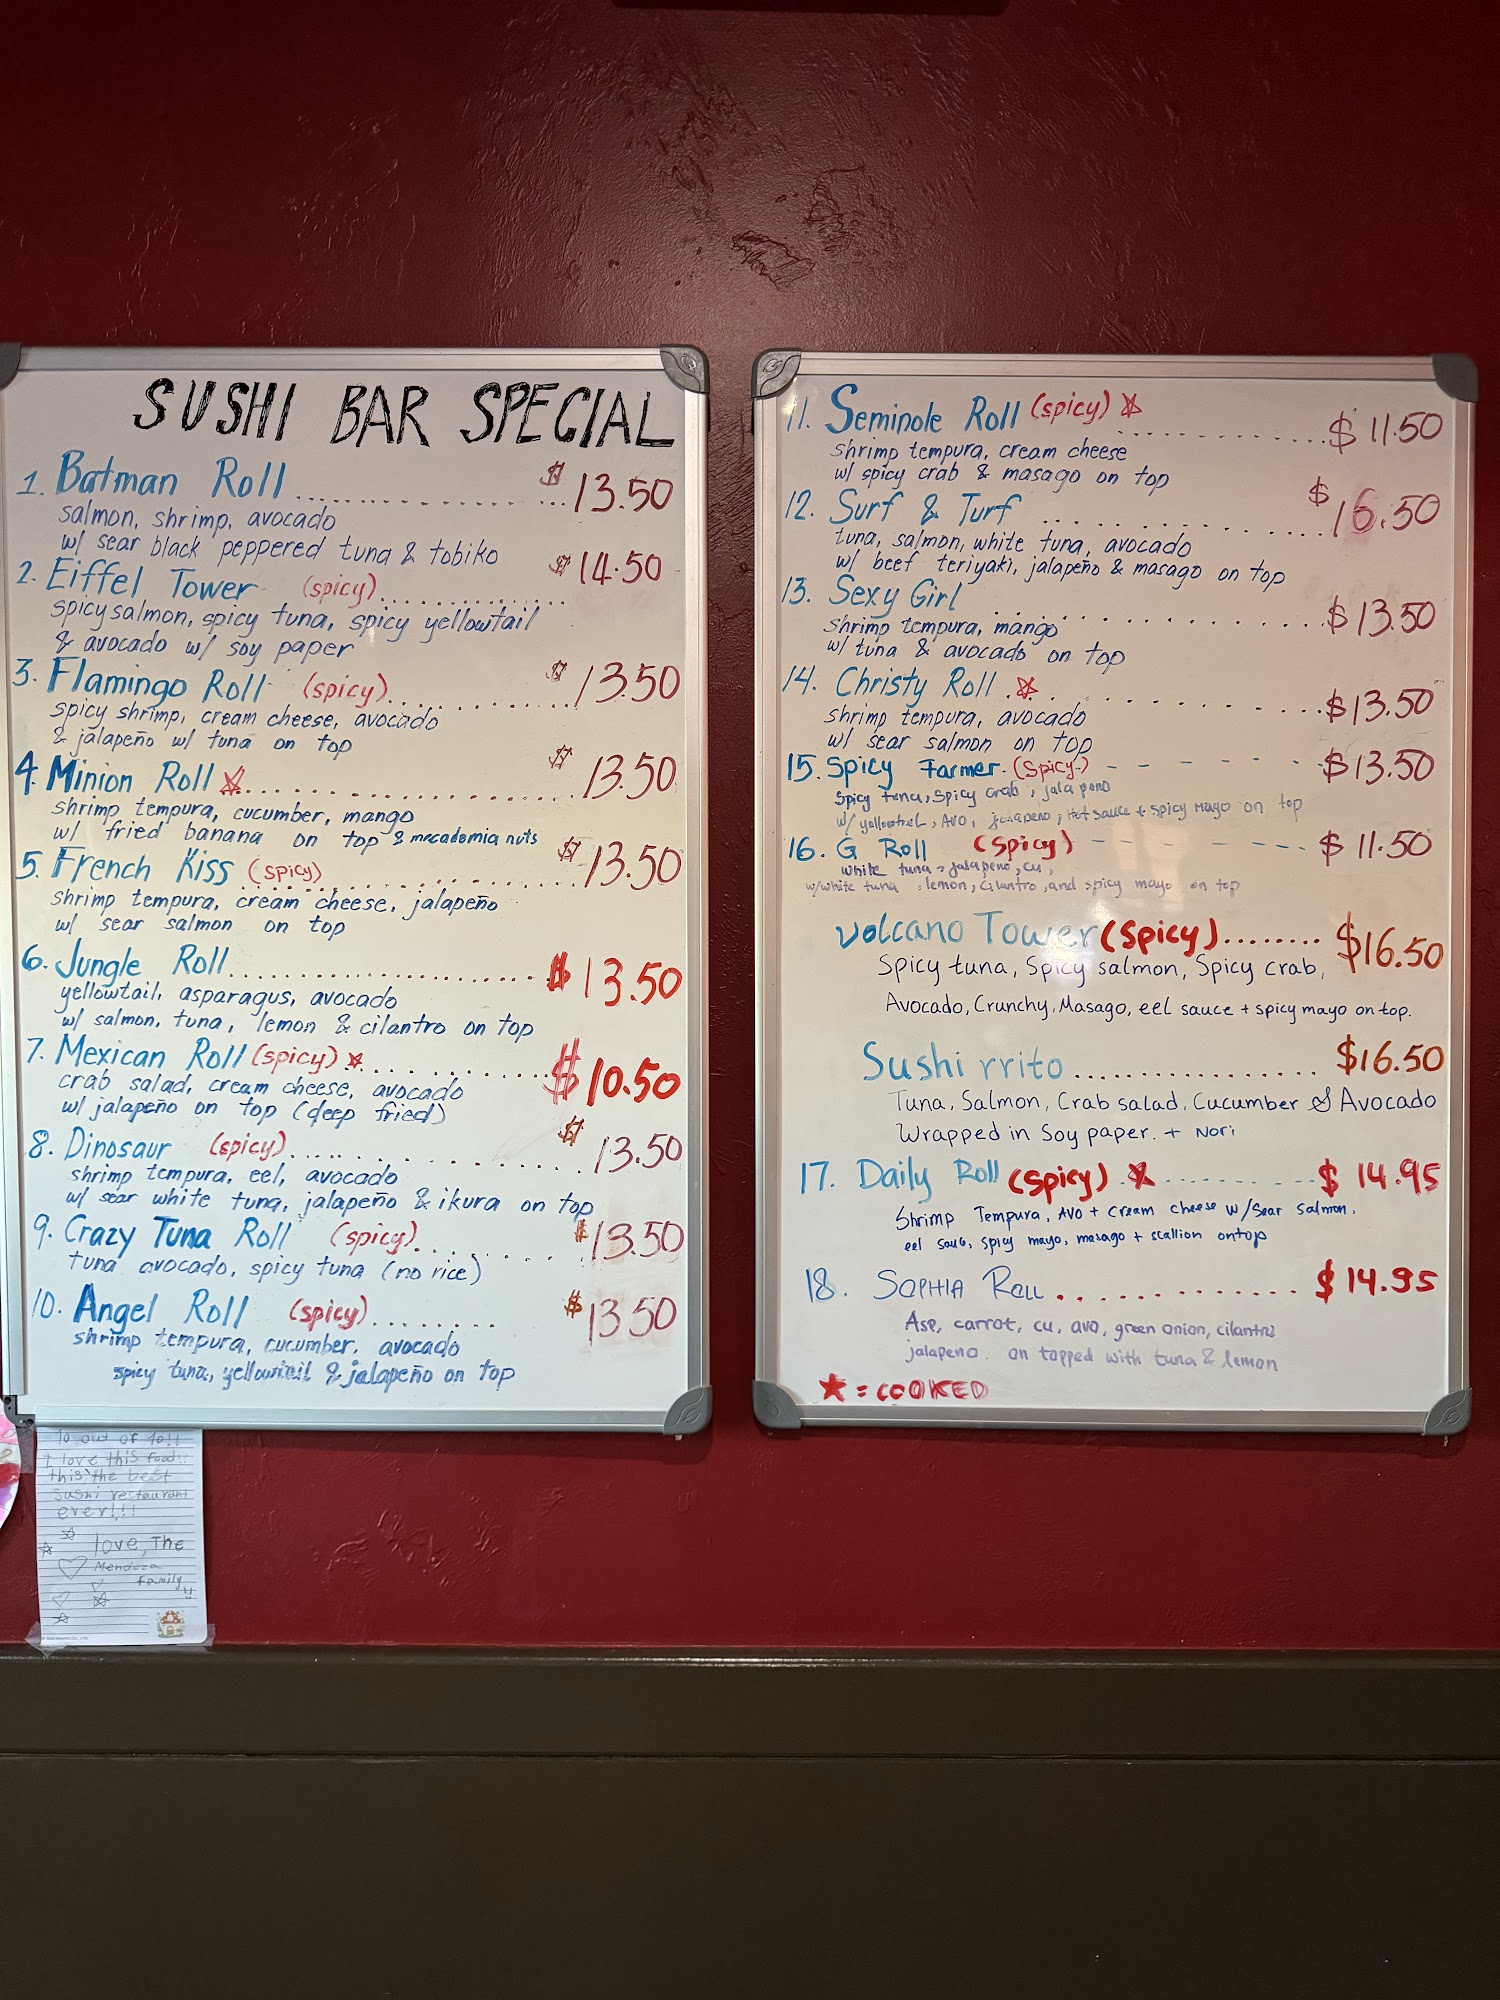 SUSHI BAR SPECIAL
1. Batman Roll .................... $13.50
salmon, shrimp, avocado
w/ sear black peppered tuna & tobiko
2. Eiffel Tower (spicy)............... $14.50
spicy salmon, spicy tuna, spicy yellowtail
& avocado w/ soy paper
3. Flamingo Roll (spicy)............... $13.50
spicy shrimp, cream cheese, avocado
& jalapeño w/ tuna on top
4. Minion Roll ☆.................... $13.50
shrimp tempura, cucumber, mango
w/ fried banana on top & macadamia nuts
5. French Kiss (spicy)............... $13.50
shrimp tempura, cream cheese, jalapeño
w/ sear salmon on top
6. Jungle Roll.................... $13.50
yellowtail, asparagus, avocado
w/ salmon, tuna, lemon & cilantro on top
7. Mexican Roll (spicy) ★............... $10.50
crab salad, cream cheese, avocado
w/ jalapeño on top (deep fried)
8. Dinosaur (spicy)............... $13.50
shrimp tempura, eel, avocado
w/ sear white tuna, jalapeño & ikura on top
9. Crazy Tuna Roll (spicy)............ $13.50
tuna avocado, spicy tuna (no rice)
10. Angel Roll (spicy)......... $13.50
shrimp tempura, cucumber, avocado
spicy tuna, yellowtail & jalapeño on top
11. Seminole Roll (spicy) ☆ ............... $11.50
shrimp tempura, cream cheese
w/ spicy crab & masago on top
12. Surf & Turf .................... $16.50
tuna, salmon, white tuna, avocado
w/ beef teriyaki, jalapeño & masago on top
13. Sexy Girl .................... $13.50
shrimp tempura, mango
w/ tuna & avocado on top
14. Christy Roll ☆ ............... $13.50
shrimp tempura, avocado
w/ sear salmon on top
15. Spicy Farmer (Spicy) - - - - - $13.50
Spicy tuna, spicy crab, jalapeno
w/ yellowtail, AVO, jalapeno, Hot sauce + spicy mayo on top
16. G Roll (Spicy) - - - - - - $11.50
white tuna, jalapeno, cu,
w/white tuna, lemon, cilantro, and spicy mayo on top
Volcano Tower (Spicy)........ $16.50
Spicy tuna, Spicy salmon, Spicy crab,
Avocado, Crunchy, Masago, eel sauce + spicy mayo on top.
Sushi rrito ................. $16.50
Tuna, Salmon, Crab salad, Cucumber & Avocado
Wrapped in Soy paper. + Nori
17. Daily Roll (Spicy) ★ ........... $14.95
Shrimp Tempura, AVO + Cream cheese w/ Sear Salmon,
eel sauc, spicy mayo, masago + scallion ontop
18. SOPHIA ROLL .............. $14.95
Asp, carrot, cu, avo, green onion, cilantro
jalapeno on topped with tuna & lemon
★ = COOKED
10 out of 10!!
I love this food!!
this the best
sushi restaurant
ever!!!
love, The
Mendoza
family